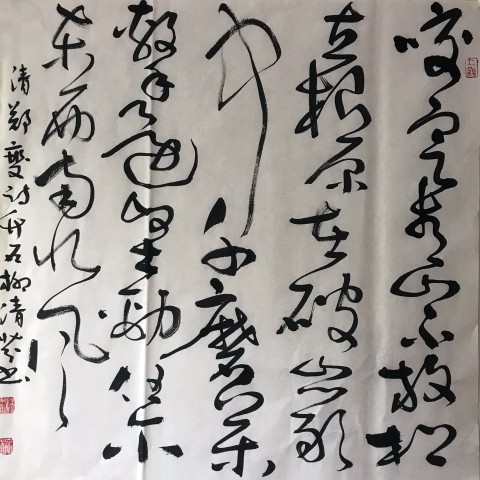 咬定青山不放松
立根原在破岩
中千磨万
击还坚劲任尔
东西南北风
清郑燮诗竹石柳清书